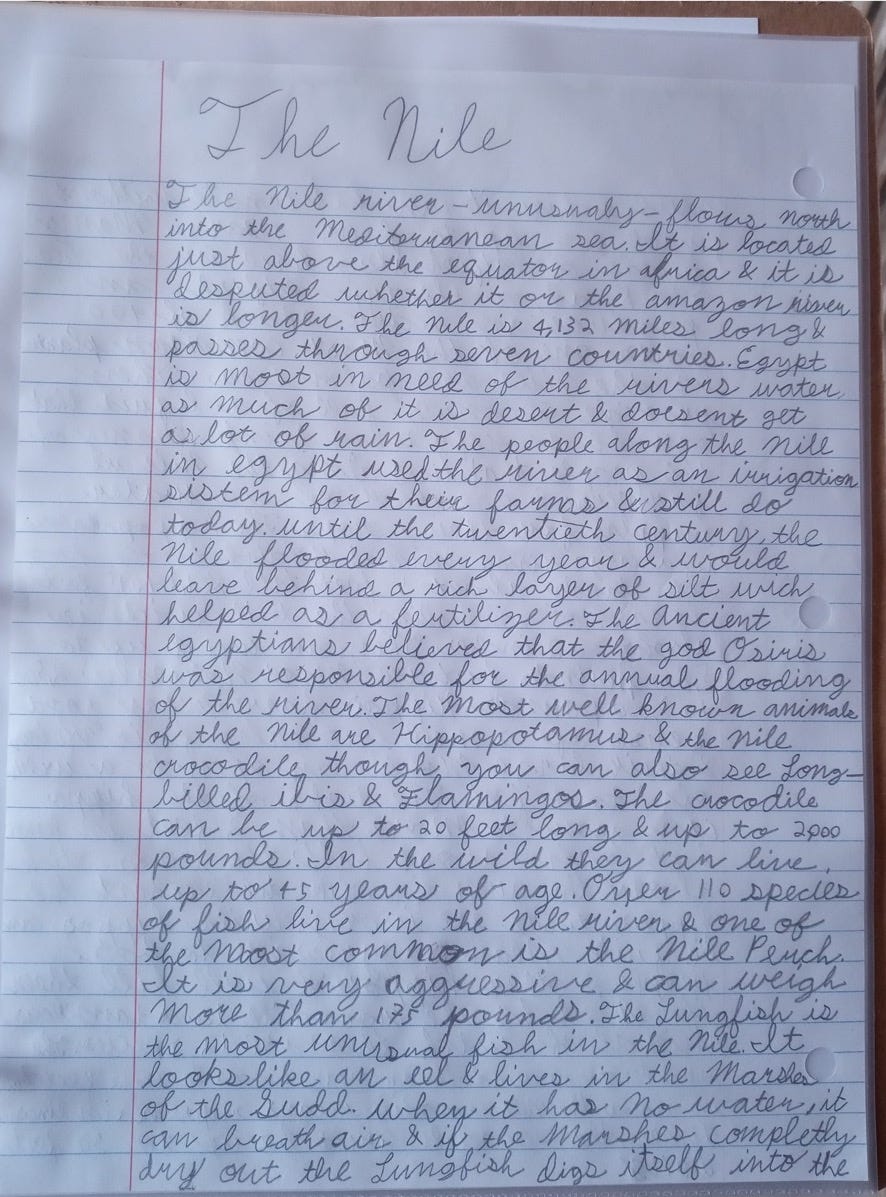 The Nile
The Nile river - unusualy - flows north
into the Mediterranean sea. It is located
just above the equator in africa & it is
desputed whether it or the amazon river
is longer. The Nile is 4,132 miles long &
passes through seven countries. Egypt
is most in need of the rivers water,
as much of it is desert & doesent get
a lot of rain. The people along the Nile
in egypt used the river as an irrigation
sistem for their farms & still do
today. until the twentieth century, the
Nile flooded every year & would
leave behind a rich layer of silt wich
helped as a fertilizer. The Ancient
egyptians believed that the god Osiris
was responsible for the annual flooding
of the river. The most well known animals
of the Nile are Hippopotamus & the Nile
crocodile, though you can also see Long-
billed ibis & Flamingos. The crocodile
can be up to 20 feet long & up to 2,000
pounds. In the wild they can live
up to 45 years of age. Over 110 species
of fish live in the Nile river & one of
the most common is the Nile Perch.
It is very aggressive & can weigh
more than 175 pounds. The Lungfish is
the most unusual fish in the Nile. It
looks like an eel & lives in the Marshes
of the Sudd. when it has no water, it
can breath air & if the Marshes completly
dry out the Lungfish digs itself into the